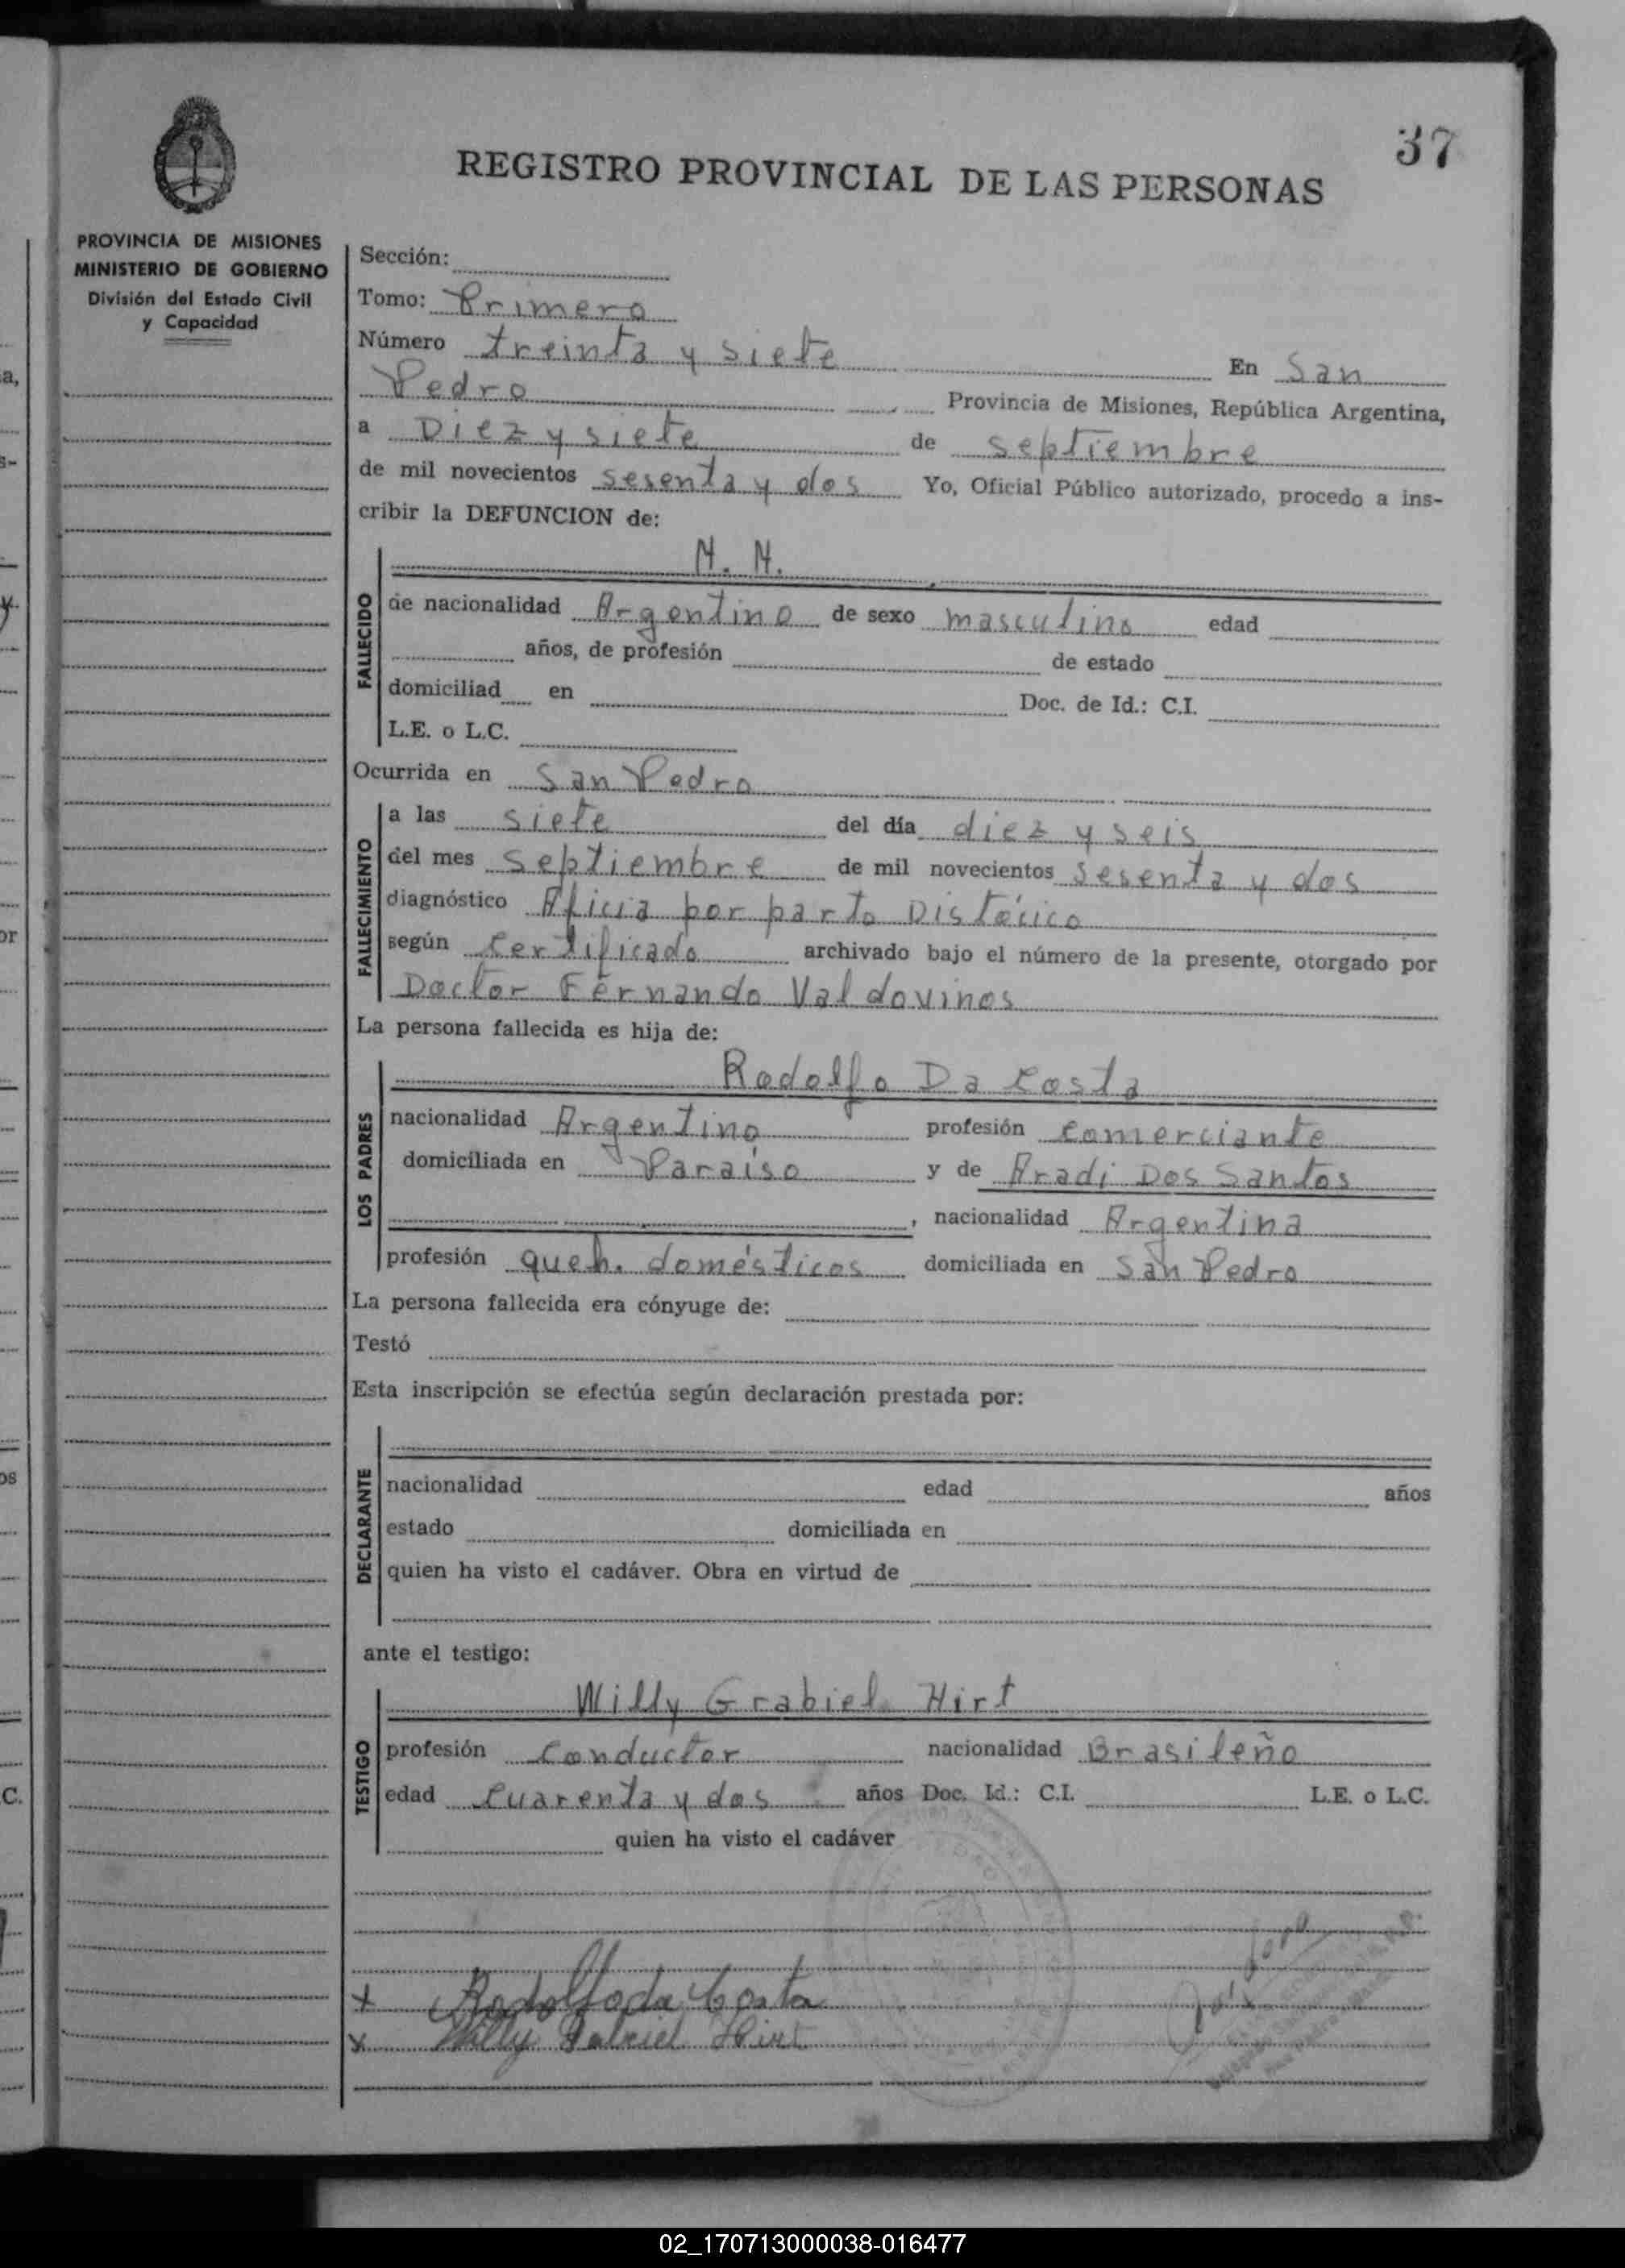 37
REGISTRO PROVINCIAL DE LAS PERSONAS
PROVINCIA DE MISIONES
MINISTERIO DE GOBIERNO
División del Estado Civil
y Capacidad
Sección:
Tomo: Primero
Número treinta y siete En San
Pedro Provincia de Misiones, República Argentina,
a Diez y siete de septiembre
de mil novecientos sesenta y dos Yo, Oficial Público autorizado, procedo a ins-
cribir la DEFUNCION de:
FALLECIDO
N. N.
de nacionalidad Argentino de sexo masculino edad
años, de profesión de estado
domiciliad en Doc. de Id.: C.I.
L.E. o L.C.
Ocurrida en San Pedro
FALLECIMIENTO
a las siete del día diez y seis
del mes septiembre de mil novecientos sesenta y dos
diagnóstico Aficia por parto Distócico
según Certificado archivado bajo el número de la presente, otorgado por
Doctor Fernando Valdovinos
La persona fallecida es hija de:
LOS PADRES
Rodolfo Da Costa
nacionalidad Argentino profesión comerciante
domiciliada en Paraíso y de Aradi Dos Santos
, nacionalidad Argentina
profesión queh. domésticos domiciliada en San Pedro
La persona fallecida era cónyuge de:
Testó
Esta inscripción se efectúa según declaración prestada por:
DECLARANTE
nacionalidad edad años
estado domiciliada en
quien ha visto el cadáver. Obra en virtud de
ante el testigo:
TESTIGO
Willy Grabiel Hirt
profesión Conductor nacionalidad Brasileño
edad Cuarenta y dos años Doc. Id.: C.I. L.E. o L.C.
quien ha visto el cadáver
x Rodolfo da Costa
x Willy Gabriel Hirt
02_170713000038-016477